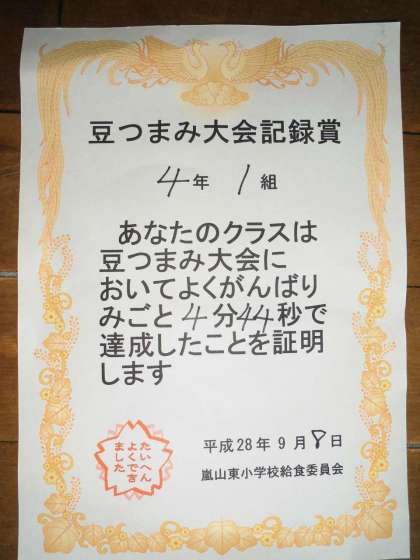 豆つまみ大会記録賞
4年 1組
あなたのクラスは
豆つまみ大会に
おいてよくがんばり
みごと4分44秒で
達成したことを証明
します
たいへん
よくでき
ました
平成28年9月8日
嵐山東小学校給食委員会